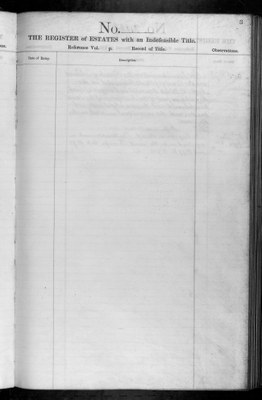 No.
THE REGISTER of ESTATES with an Indefeasible Title.
Reference Vol. p. Record of Title.
Observations.
Date of Entry.
Description.